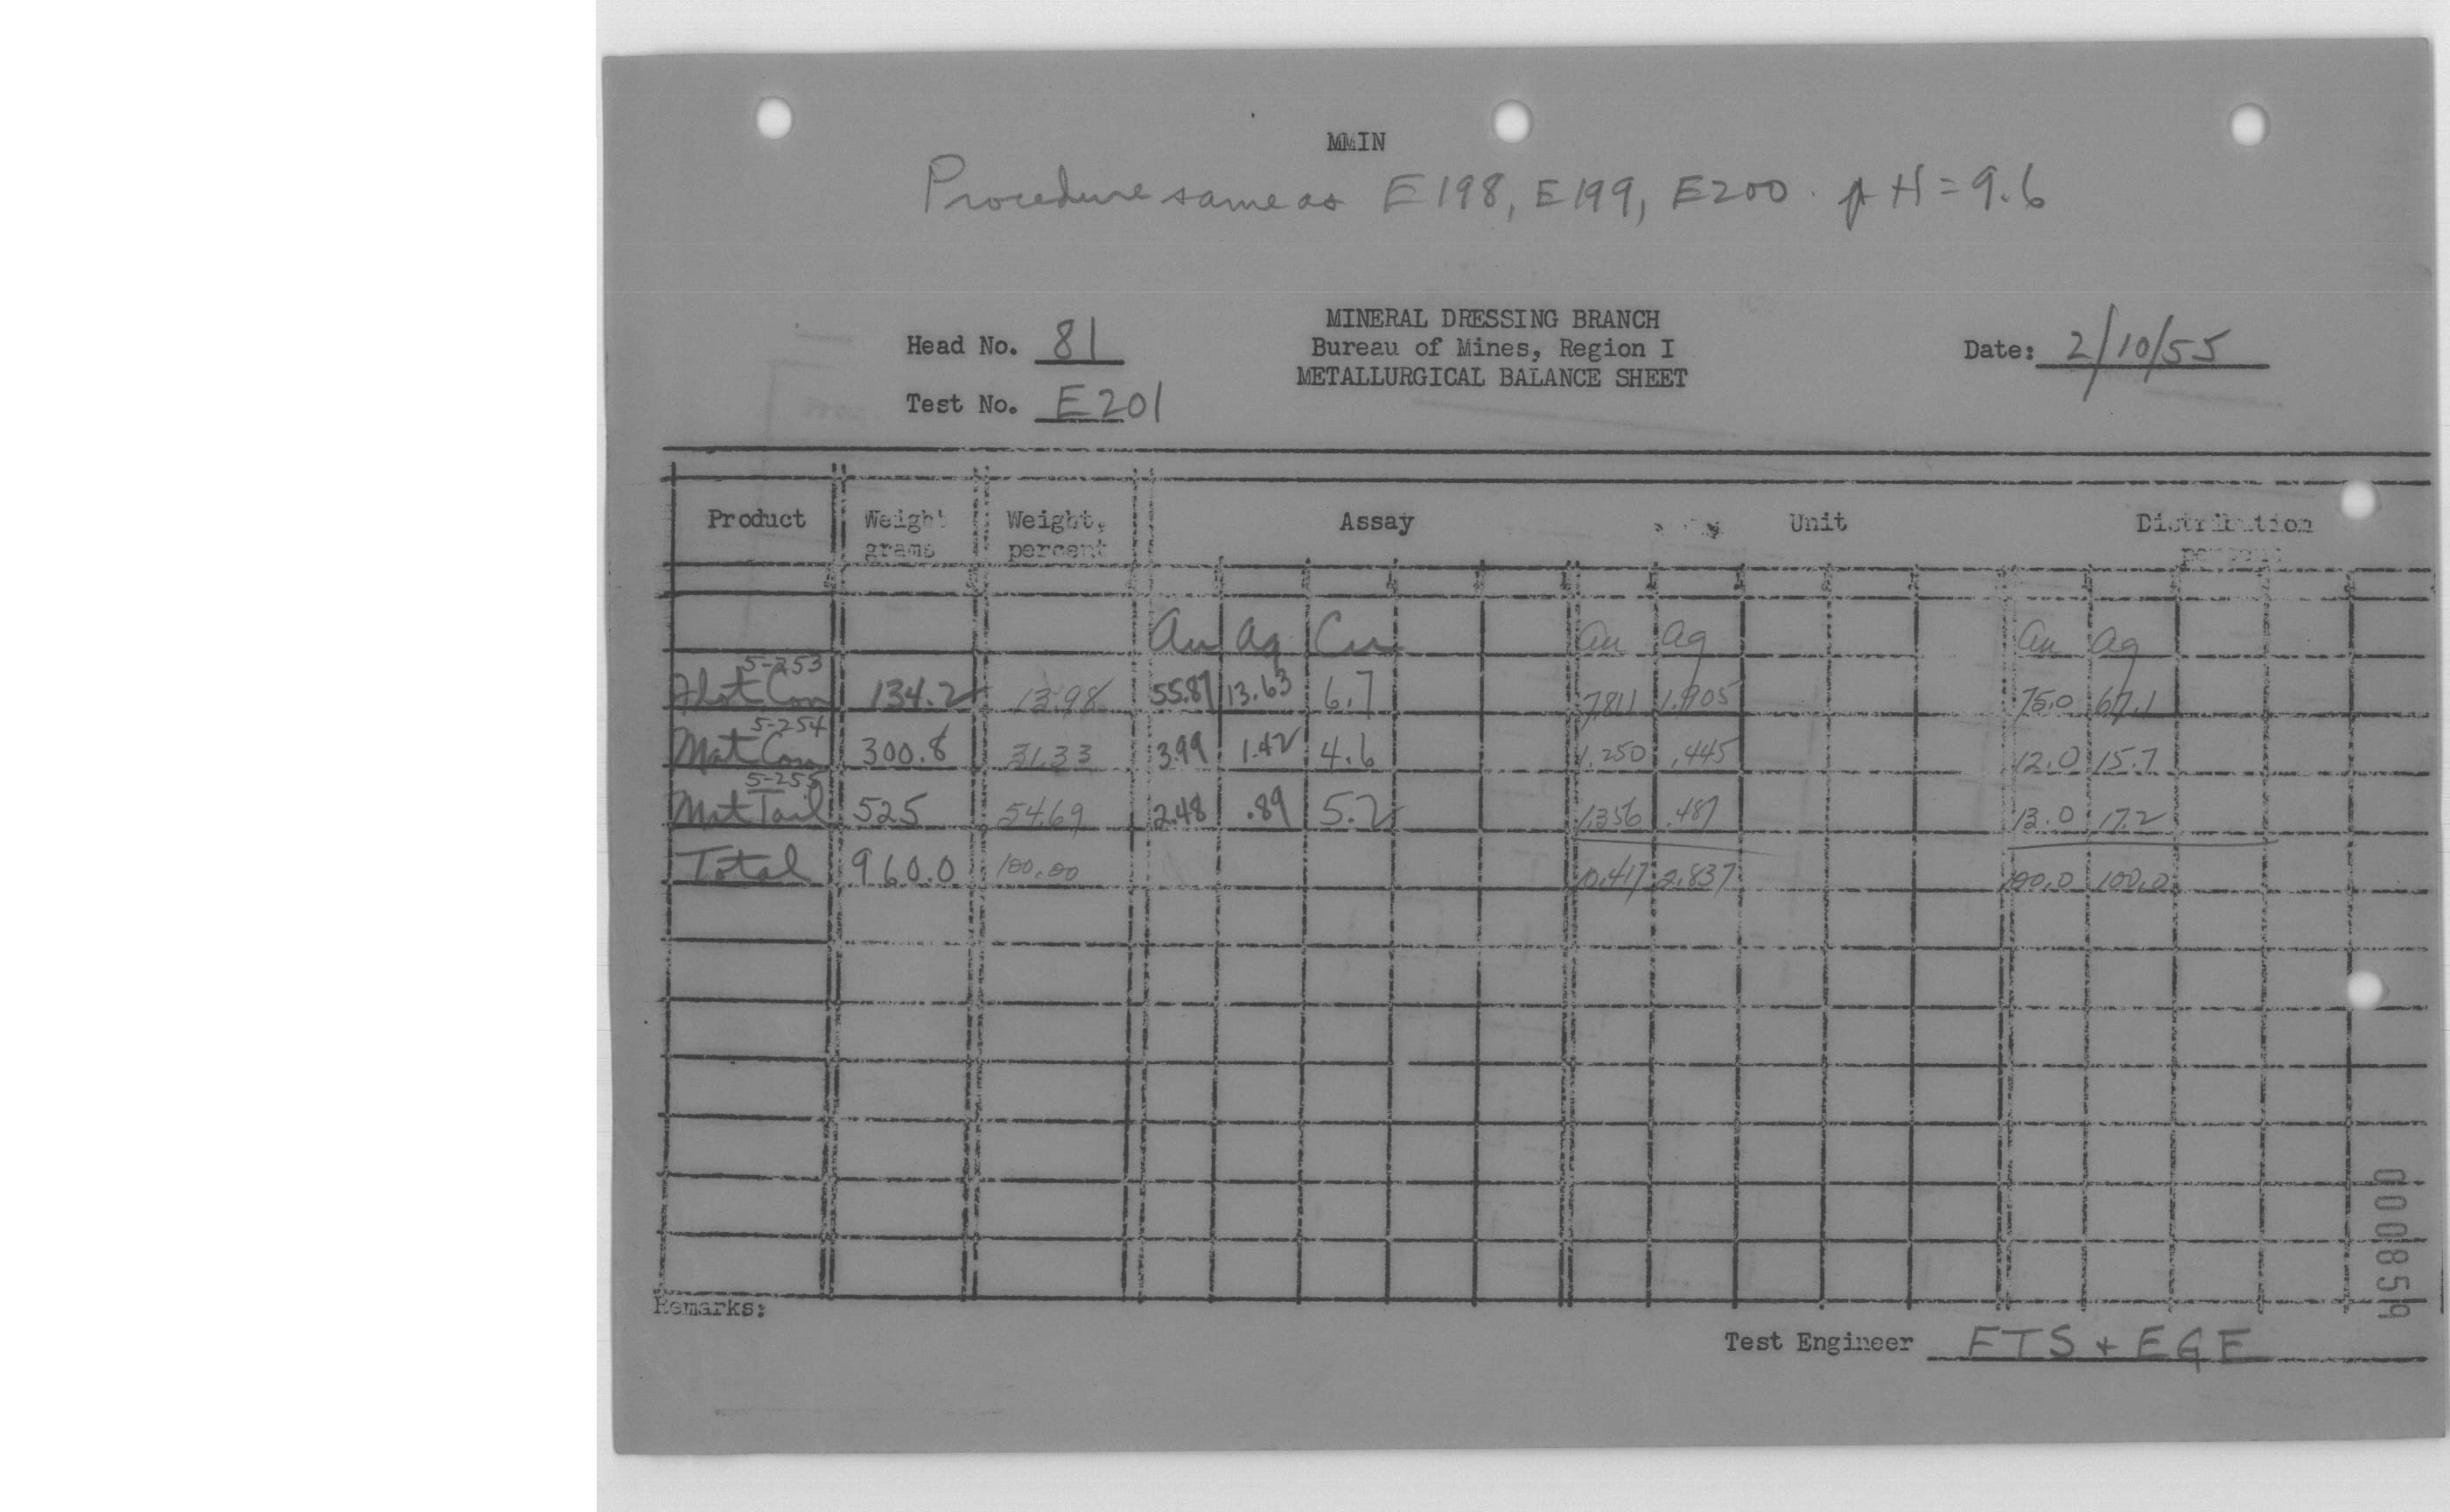 MMIN
Procedure same as E198, E199, E200. pH = 9.6
MINERAL DRESSING BRANCH
Head No. 81 Bureau of Mines, Region I Date: 2/10/55
METALLURGICAL BALANCE SHEET
Test No. E201
Product Weight grams Weight, percent Assay Unit Distribution percent
Au Ag Cu Au Ag Au Ag
5-253
Flot Con 134.2 13.98 55.87 13.63 6.7 7.811 1.905 75.0 67.1
5-254
Mat Con 300.8 31.33 3.99 1.42 4.6 1.250 .445 12.0 15.7
5-255
Mat Tail 525 54.69 2.48 .89 5.2 1.356 .487 13.0 17.2
Total 960.0 100.00 10.417 2.837 100.0 100.0
Remarks:
Test Engineer FTS + EGE
000859